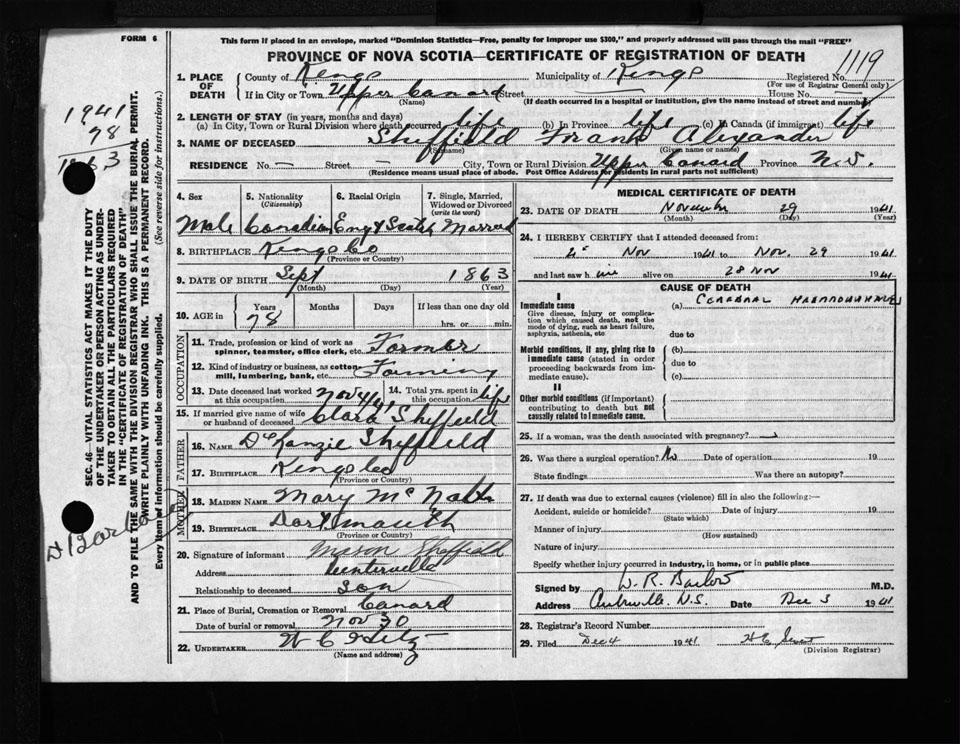 FORM 6
This form if placed in an envelope, marked "Dominion Statistics—Free, penalty for improper use $300," and properly addressed will pass through the mail "FREE"
PROVINCE OF NOVA SCOTIA—CERTIFICATE OF REGISTRATION OF DEATH
1119
1. PLACE OF DEATH
County of Kings Municipality of Kings Registered No.
(For use of Registrar General only)
If in City or Town Upper Canard Street House No.
(Name) (If death occurred in a hospital or institution, give the name instead of street and number)
2. LENGTH OF STAY (in years, months and days)
(a) In City, Town or Rural Division where death occurred life (b) In Province life (c) In Canada (if immigrant) life
3. NAME OF DECEASED Sheffield Frank Alexander
(Surname) (Given name or names)
RESIDENCE No. — Street — City, Town or Rural Division Upper Canard Province N.S.
(Residence means usual place of abode. Post Office Address for residents in rural parts not sufficient)
4. Sex 5. Nationality (Citizenship) 6. Racial Origin 7. Single, Married, Widowed or Divorced (write the word)
Male Canadian Eng & Scotch Married
8. BIRTHPLACE Kings Co
(Province or Country)
9. DATE OF BIRTH Sept 1863
(Month) (Day) (Year)
10. AGE in Years Months Days If less than one day old
78 hrs. or min.
OCCUPATION
11. Trade, profession or kind of work as spinner, teamster, office clerk, etc. Farmer
12. Kind of industry or business, as cotton mill, lumbering, bank, etc. Farming
13. Date deceased last worked at this occupation Nov 4/41 14. Total yrs. spent in this occupation life
15. If married give name of wife or husband of deceased Clara Sheffield
FATHER
16. NAME Sheffield
17. BIRTHPLACE Kings Co
(Province or Country)
MOTHER
18. MAIDEN NAME Mary
19. BIRTHPLACE Dartmouth
(Province or Country)
20. Signature of informant Mason Sheffield
Address Centerville
Relationship to deceased Son
21. Place of Burial, Cremation or Removal Canard
Date of burial or removal Nov 30
22. UNDERTAKER W C
(Name and address)
MEDICAL CERTIFICATE OF DEATH
23. DATE OF DEATH November 29 1941
(Month) (Day) (Year)
24. I HEREBY CERTIFY that I attended deceased from:
4" Nov 1941 to Nov. 29 1941
and last saw him alive on 28 Nov 1941
CAUSE OF DEATH
I
Immediate cause (a) CEREBRAL HAEMORRHAGE
Give disease, injury or complication which caused death, not the mode of dying, such as heart failure, asphyxia, asthenia, etc
due to
Morbid conditions, if any, giving rise to immediate cause (stated in order proceeding backwards from immediate cause).
(b)
due to
(c)
II
Other morbid conditions (if important) contributing to death but not causally related to immediate cause.
25. If a woman, was the death associated with pregnancy?
26. Was there a surgical operation? No Date of operation 19
State findings Was there an autopsy?
27. If death was due to external causes (violence) fill in also the following:—
Accident, suicide or homicide? Date of injury 19
(State which)
Manner of injury
(How sustained)
Nature of injury
Specify whether injury occurred in industry, in home, or in public place
Signed by M.D.
Address N.S. Date Dec 3 1941
28. Registrar's Record Number
29. Filed Dec 4 1941
(Division Registrar)
1941
78
1863
SEC. 46—VITAL STATISTICS ACT MAKES IT THE DUTY OF THE UNDERTAKER OR PERSON ACTING AS UNDERTAKER TO OBTAIN ALL THE PARTICULARS REQUIRED IN THE "CERTIFICATE OF REGISTRATION OF DEATH" AND TO FILE THE SAME WITH THE DIVISION REGISTRAR WHO SHALL ISSUE THE BURIAL PERMIT.
WRITE PLAINLY WITH UNFADING INK. THIS IS A PERMANENT RECORD.
Every item of information should be carefully supplied. (See reverse side for instructions.)